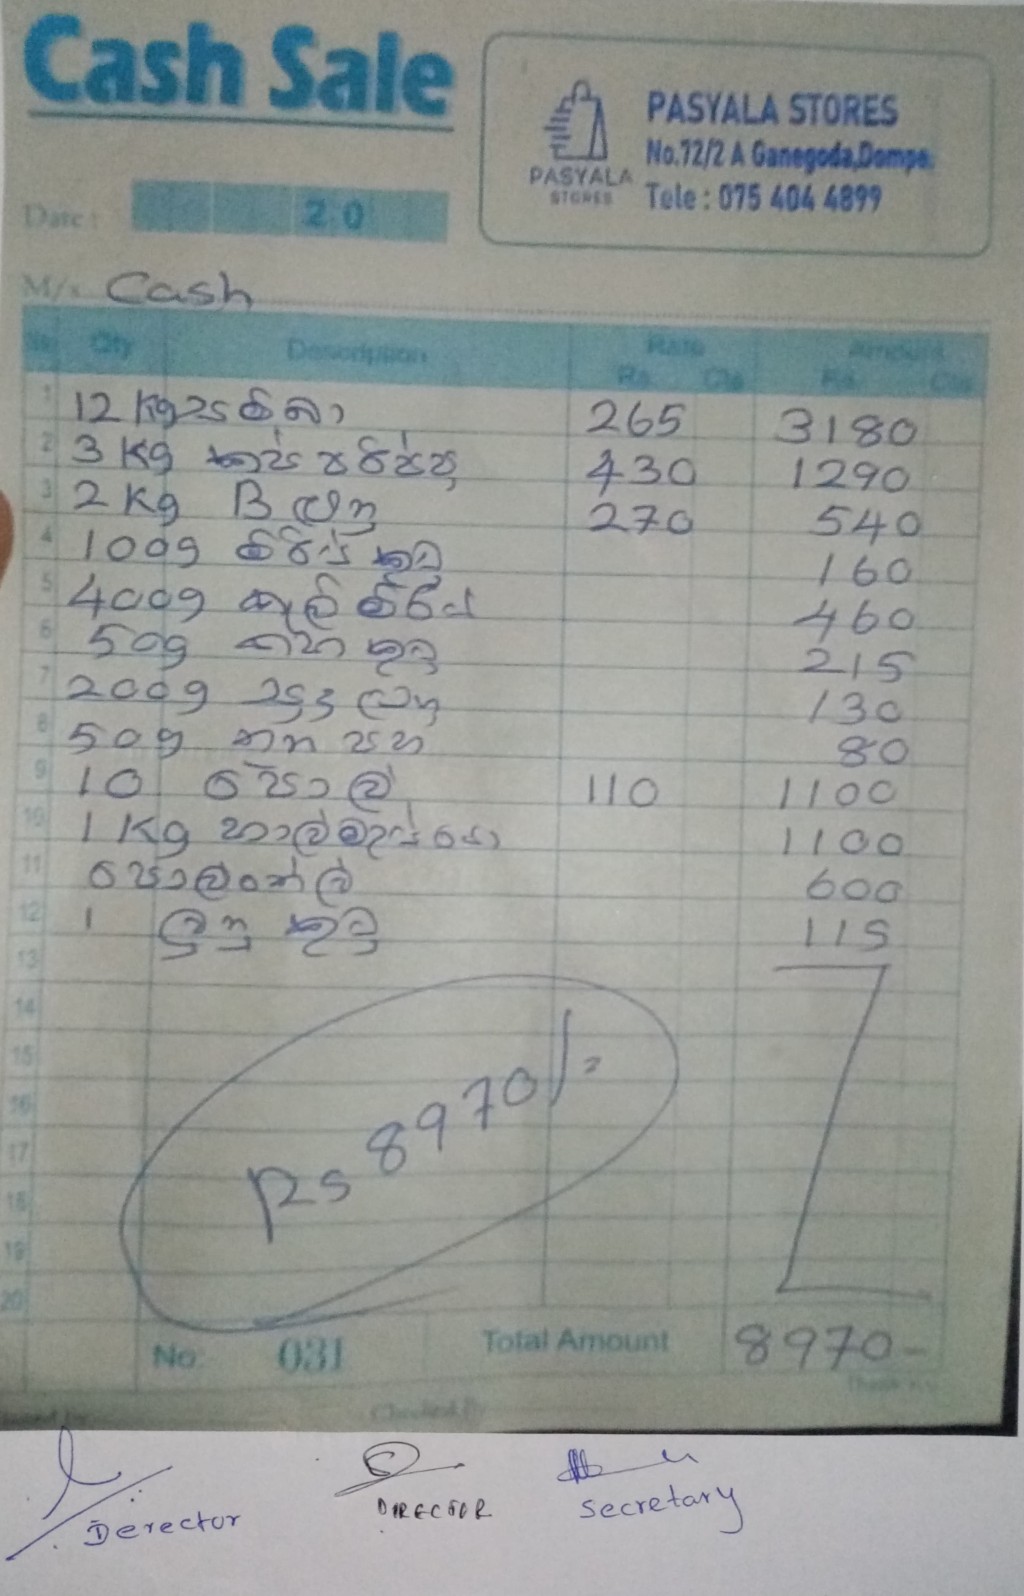 Cash Sale
PASYALA STORES
No.72/2 A Ganegoda,Dompe.
Tele : 075 404 4899
PASYALA
STORES
Date : 20
M/s Cash
No Qty Description Rate Amount
Rs. Cts Rs. Cts
1 12 Kg 265 3180
2 3 Kg පරිප්පු 430 1290
3 2 Kg B ලූනු 270 540
4 100g කුඩු 160
5 400g 460
6 50g කහ කුඩු 215
7 200g සුදු ලූනු 130
8 50g තුන පහ 80
9 10 පොල් 110 1100
10 1 Kg හාල්මැස්සො 1100
11 පොල්තෙල් 600
12 1 ලුනු කුඩු 115
13
14
15
16
17
18
19
20
Rs 8970/=
No: 031 Total Amount 8970-
Checked By
Derector DIRECTOR Secretary